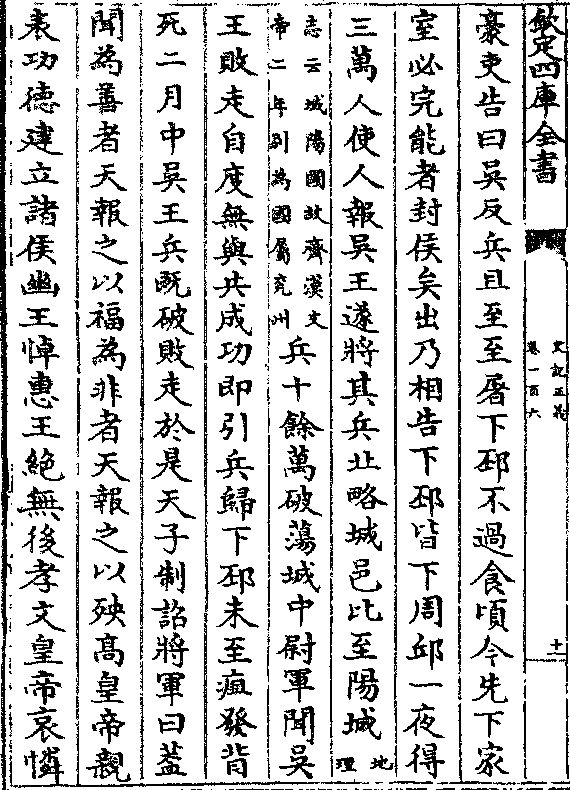 欽定四庫全書
史記正義
卷一百六
十一
豪吏告曰吳反兵且至至屠下邳不過食頃今先下家
室必完能者封侯矣出乃相告下邳皆下周邱一夜得
三萬人使人報吳王遂將其兵北略城邑比至陽城
地
理
志云城陽國故齊漢文
帝二年别為國屬兗州
兵十餘萬破蕩城中尉軍聞吳
王敗走自度無與共成功即引兵歸下邳未至疽發背
死二月中吳王兵既破敗走於是天子制詔將軍曰葢
聞為善者天報之以福為非者天報之以殃髙皇帝親
表功徳建立諸侯幽王悼惠王絶無後孝文皇帝哀憐